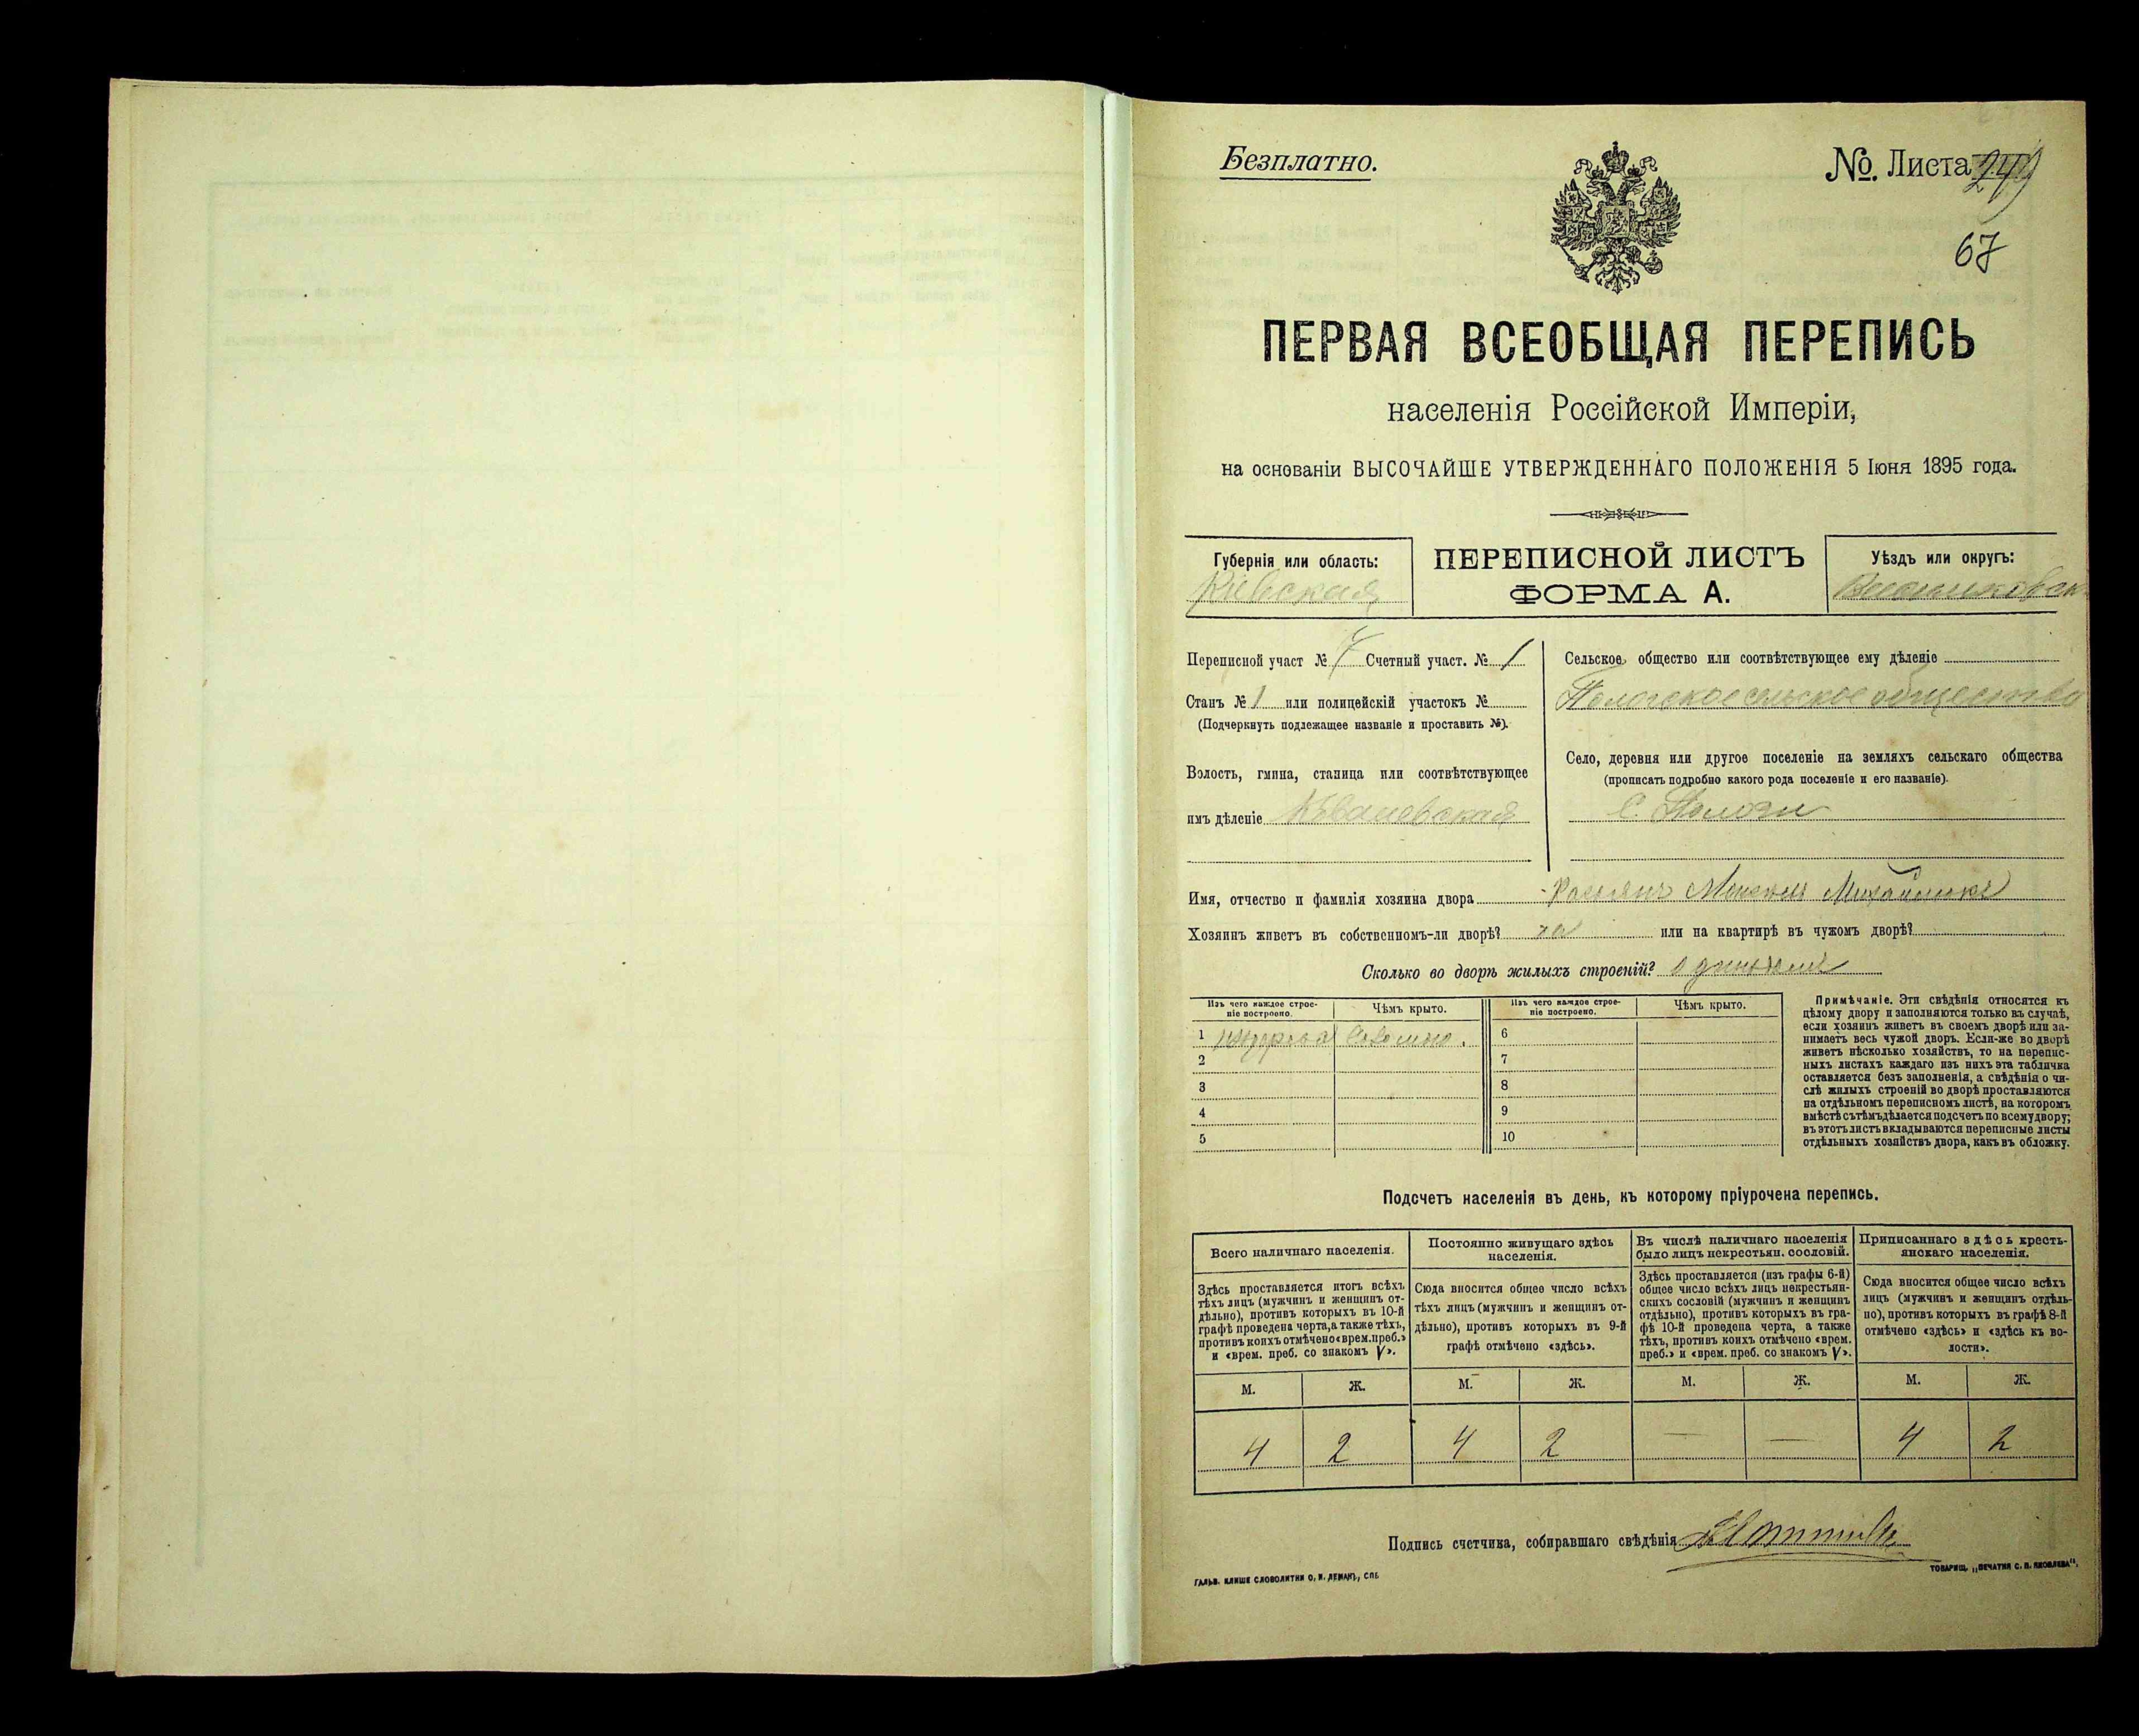 Безплатно.
№. Листа 249
67
ПЕРВАЯ ВСЕОБЩАЯ ПЕРЕПИСЬ
населенія Россійской Имперіи,
на основаніи ВЫСОЧАЙШЕ УТВЕРЖДЕННАГО ПОЛОЖЕНІЯ 5 Іюня 1895 года.
Губернія или область:
Кіевская
ПЕРЕПИСНОЙ ЛИСТЪ
ФОРМА А.
Уѣздъ или округъ:
Переписной участ № 7 Счетный участ. № 1
Станъ № 1 или полицейскій участокъ №
(Подчеркнуть подлежащее названіе и проставить №).
Волость, гмина, станица или соотвѣтствующее
имъ дѣленіе
Сельское общество или соотвѣтствующее ему дѣленіе
сельское общество
Село, деревня или другое поселеніе на земляхъ сельскаго общества
(прописать подробно какого рода поселеніе и его названіе).
С. Пологи
Имя, отчество и фамилія хозяина двора
Хозяинъ живетъ въ собственномъ-ли дворѣ? или на квартирѣ въ чужомъ дворѣ?
Сколько во дворѣ жилыхъ строеній?
Изъ чего каждое строе-
ніе построено.
Чѣмъ крыто.
Изъ чего каждое строе-
ніе построено.
Чѣмъ крыто.
1 Соломою.
2
3
4
5
6
7
8
9
10
Примѣчаніе. Эти свѣдѣнія относятся къ
цѣлому двору и заполняются только въ случаѣ,
если хозяинъ живетъ въ своемъ дворѣ или за-
нимаетъ весь чужой дворъ. Если-же во дворѣ
живетъ нѣсколько хозяйствъ, то на перепис-
ныхъ листахъ каждаго изъ нихъ эта табличка
оставляется безъ заполненія, а свѣдѣнія о чи-
слѣ жилыхъ строеній во дворѣ проставляются
на отдѣльномъ переписномъ листѣ, на которомъ
вмѣстѣ съ тѣмъ дѣлается подсчетъ по всему двору;
въ этотъ листъ вкладываются переписные листы
отдѣльныхъ хозяйствъ двора, какъ въ обложку.
Подсчетъ населенія въ день, къ которому пріурочена перепись.
Всего наличнаго населенія.
Здѣсь проставляется итогъ всѣхъ
тѣхъ лицъ (мужчинъ и женщинъ от-
дѣльно), противъ которыхъ въ 10-й
графѣ проведена черта, а также тѣхъ,
противъ коихъ отмѣчено «врем. преб.»
и «врем. преб. со знакомъ V».
Постоянно живущаго здѣсь
населенія.
Сюда вносится общее число всѣхъ
тѣхъ лицъ (мужчинъ и женщинъ от-
дѣльно), противъ которыхъ въ 9-й
графѣ отмѣчено «здѣсь».
Въ числѣ наличнаго населенія
было лицъ некрестьян. сословій.
Здѣсь проставляется (изъ графы 6-й)
общее число всѣхъ лицъ некрестьян-
скихъ сословій (мужчинъ и женщинъ
отдѣльно), противъ которыхъ въ гра-
фѣ 10-й проведена черта, а также
тѣхъ, противъ коихъ отмѣчено «врем.
преб.» и «врем. преб. со знакомъ V».
Приписаннаго здѣсь кресть-
янскаго населенія.
Сюда вносится общее число всѣхъ
лицъ (мужчинъ и женщинъ отдѣль-
но), противъ которыхъ въ графѣ 8-й
отмѣчено «здѣсь» и «здѣсь въ во-
лости».
М. Ж. М. Ж. М. Ж. М. Ж.
4 2 4 2 — — 4 2
Подпись счетчика, собиравшаго свѣдѣнія
ГАЛЬВ. КЛИШЕ СЛОВОЛИТНИ О. И. ЛЕМАН, СПБ.
ТОВАРИЩ. „ПЕЧАТНЯ С. П. ЯКОВЛЕВА“.